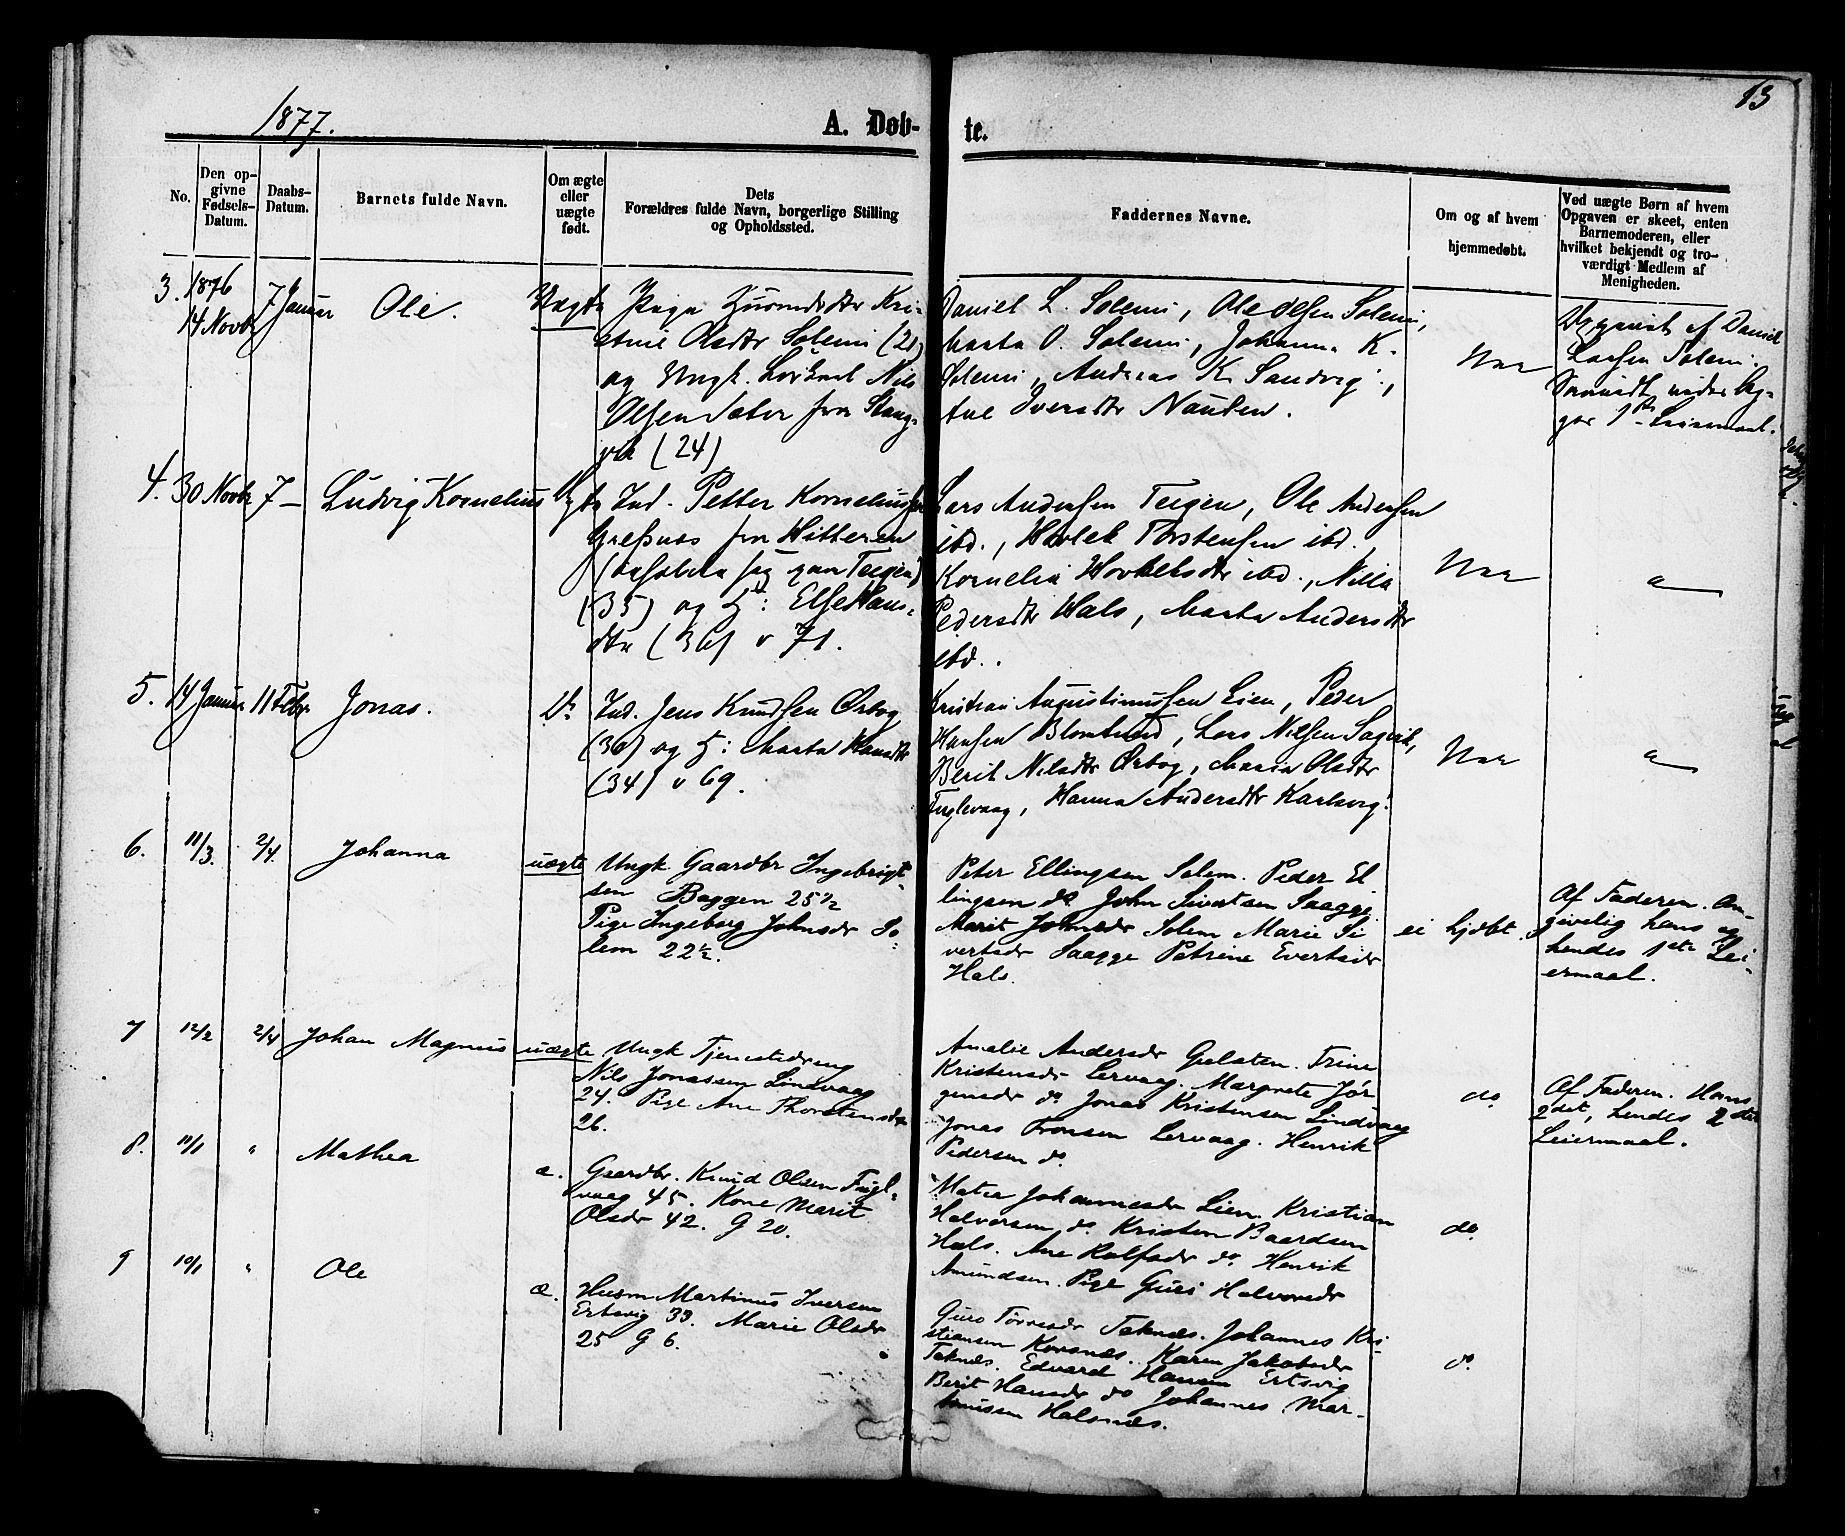 1877.
A. Døb-
te.
13
No.
Den op-
givne
Fødsels-
Datum.
Daabs-
Datum.
Barnets fulde Navn.
Om ægte
eller
uægte
født.
Dets
Forældres fulde Navn, borgerlige Stilling
og Opholdssted.
Faddernes Navne.
Om og af hvem
hjemmedøbt.
Ved uægte Børn af hvem
Opgaven er skeet, enten
Barnemoderen, eller
hvilket bekjendt og tro-
værdigt Medlem af
Menigheden.
3. 1876
14 Novbr
7 Januar
Ole.
Uægte
Pige Kri-
stine Olsdtr Solemi (21)
og Ungk. Nils
Olsen Sæter fra Stang-
vik (24)
Daniel L. Solemi, Ole Olsen Solemi,
Marta O. Solemi, Johanna K.
Solemi, Andreas K. Sandvig,
Ane Iversdtr Nausten.
Nei
Opgivet af Daniel
Larsen Solemi.
1ste Leiermaal.
4. 30 Novbr 7 —
Ludvig Kornelius
Ægte
Ind. Petter Korneliussen
fra Hitteren
(35) og H: Else Hans-
dtr (36) v 71.
Lars Andersen Teigen, Ole Andersen
ibd., Torstensen ibd.
Kornelia ibd., Nilla
Pedersdtr Hals, Marta Andersdtr
ibd.
Nei
"
5. 14 Januar 11 Febr.
Jonas.
Do
Ind. Jens Knudsen Ørbog
(36) og H: Marta Hansdtr
(34) v 69.
Kristian Augustinussen Lien, Peder
Hansen Lars Nilsen Sagvik,
Berit Nilsdtr Ørbog, Maria Olsdtr
Fuglevaag, Hanna Andersdtr Karlsvig.
Nei
"
6. 11/3. 2/4.
Johanna
uægte
Ungk. Gaardbr Ingebrigt-
sen Baggen 25 1/2
Pige Ingeborg Johnsdr So-
lem 22 1/2.
Peter Ellingsen Solem. Peder El
lingsen do John Sivertsen Saagge
Marit Johnsdr Solem Marie Si
vertsdr Saagge Petrine Evertsdr
Hals.
ei hjdbt.
Af Faderen. An-
givelig hans og
hendes 1ste Lei-
ermaal.
7 12/2 2/4
Johan Magnus
uægte
Ungk Tjenestedreng
Nils Jonassen Lindvaag
24. Pige Ane Thorstensdr
26.
Amalie Andersdr Gulsten. Trine
Kristensdr Lervaag. Margrete Jør
gensdr do Jonas Kristensen Lindvaag
Jonas Tronsen Lervaag. Henrik
Pedersen do.
do.
Af Faderen. Hans
2det, hendes 2det
Leiermaal.
8. 11/1 "
Mathea
æ.
Gaardbr. Knud Olsen Fugl-
vaag 45. Kone Marit
Olsdr 42. G 20.
Metea Johannesdr Lien. Kristian
Halvorsen do. Kristen Baardsen
Hals. Ane Rolfsdr do. Henrik
Amundsen. Pige Guri Halvorsdr
do.
9 10/1 "
Ole
æ.
Husm Martinus Iversen
Ertsvig 33. Marie Olsdr
25 G 6.
Guro Torresdr Taknæs. Johannes Kri-
stiansen Korsnæs. Karen Jakobsdr
Taknæs. Edvard Hansen Ertsvig
Berit Hansdr do Johannes Mar-
tinussen Halsnæs.
do.